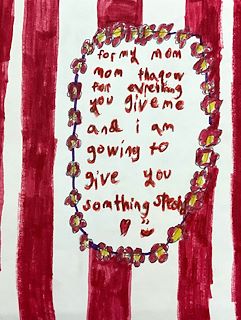 for my mom
mom thaqow
for evrething
you give me
and i am
gowing to
give you
somthing